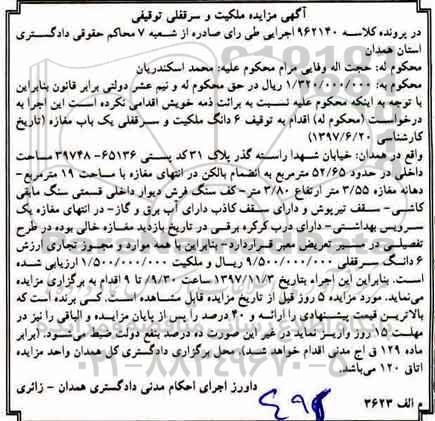 آگهی مزایده ملکیت و سرقفلی توقیفی
در پرونده کلاسه ۹۶۲۱۴۰ اجرایی طی رای صادره از شعبه ۷ محاکم حقوقی دادگستری
استان همدان
محکوم له: حجت اله وفایی مرام محکوم علیه: محمد اسکندریان
محکوم به: ۱/۳۲۰/۰۰۰/۰۰۰ ریال در حق محکوم له و نیم عشر دولتی برابر قانون بنابراین
با توجه به اینکه محکوم علیه نسبت به برائت ذمه خویش اقدامی نکرده است این اجرا به
درخواست (محکوم له) اقدام به توقیف ۶ دانگ ملکیت و سرقفلی یک باب مغازه (تاریخ
کارشناسی ۱۳۹۷/۶/۲۰)
واقع در همدان: خیابان شهدا راسته گذر پلاک ۳۱ کد پستی ۶۵۱۳۶-۳۹۷۴۸ مساحت
داخلی در حدود ۵۲/۶۵ مترمربع به انضمام بالکن در انتهای مغازه با مساحت ۱۹ مترمربع-
دهانه مغازه ۳/۵۵ متر ارتفاع ۳/۸۰ متر- کف سنگ فرش دیوار داخلی قسمتی سنگ مابقی
کاشی- سقف تیرپوش و دارای سقف کاذب دارای آب برق و گاز- در انتهای مغازه یک
سرویس بهداشتی- دارای درب کرکره برقی در تاریخ بازدید مغازه خالی بوده در طرح
تفصیلی در مسیر تعریض معبر قراردارد- بنابراین با همه موارد و مجوز تجاری ارزش
۶ دانگ سرقفلی ۹/۵۰۰/۰۰۰/۰۰۰ ریال و ملکیت ۱/۵۰۰/۰۰۰/۰۰۰ ارزیابی شده
است. بنابراین این اجراء بتاریخ ۱۳۹۷/۱۱/۳ ساعت ۹/۳۰ تا ۹ اقدام به برگزاری مزایده
می‌نماید. مورد مزایده ۵ روز قبل از تاریخ مزایده قابل مشاهده است. کسی برنده است که
بالاترین قیمت پیشنهادی را ارائه و ۴۰ درصد را پس از پایان مزایده و الباقی را نیز در
مهلت ۱۵ روز واریز نماید در غیر این صورت ده درصد بنفع دولت ضبط می‌شود. (برابر
ماده ۱۲۹ ق اج مدنی اقدام خواهد شد). محل برگزاری دادگستری کل همدان واحد مزایده
اتاق ۱۲۰ می‌باشد.
داورز اجرای احکام مدنی دادگستری همدان - زائری
م الف ۳۶۲۳
۰۲۱-۸۸۳۴۹۶۷۰-۵